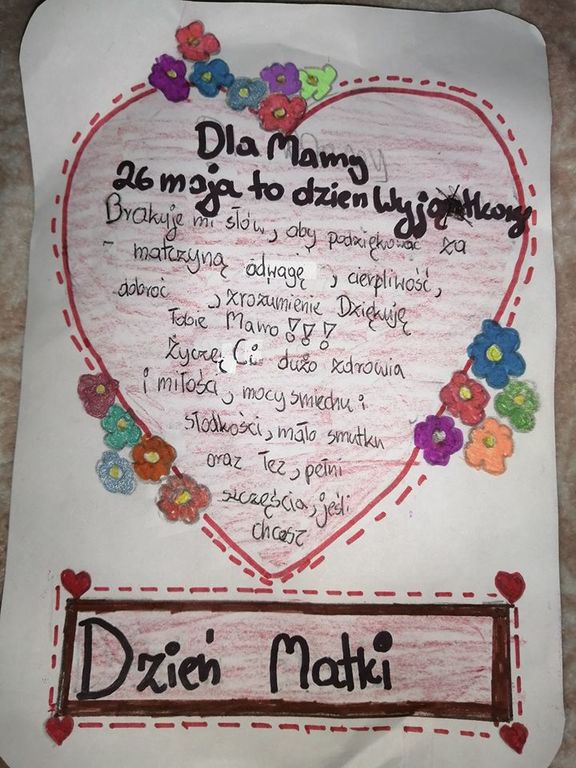 Dla Mamy
26 maja to dzien Wyjątkowy
Brakuje mi słów, aby podziękować za
- matczyną odwagę , cierpliwość,
dobroć , zrozumienie Dziękuję
Tobie Mamo !!!
Życzę Ci dużo zdrowia
i miłości, mocy smiechu i
słodkości, mało smutku
oraz łez, pełni
szczęścia, jeśli
chcesz
Dzień Matki